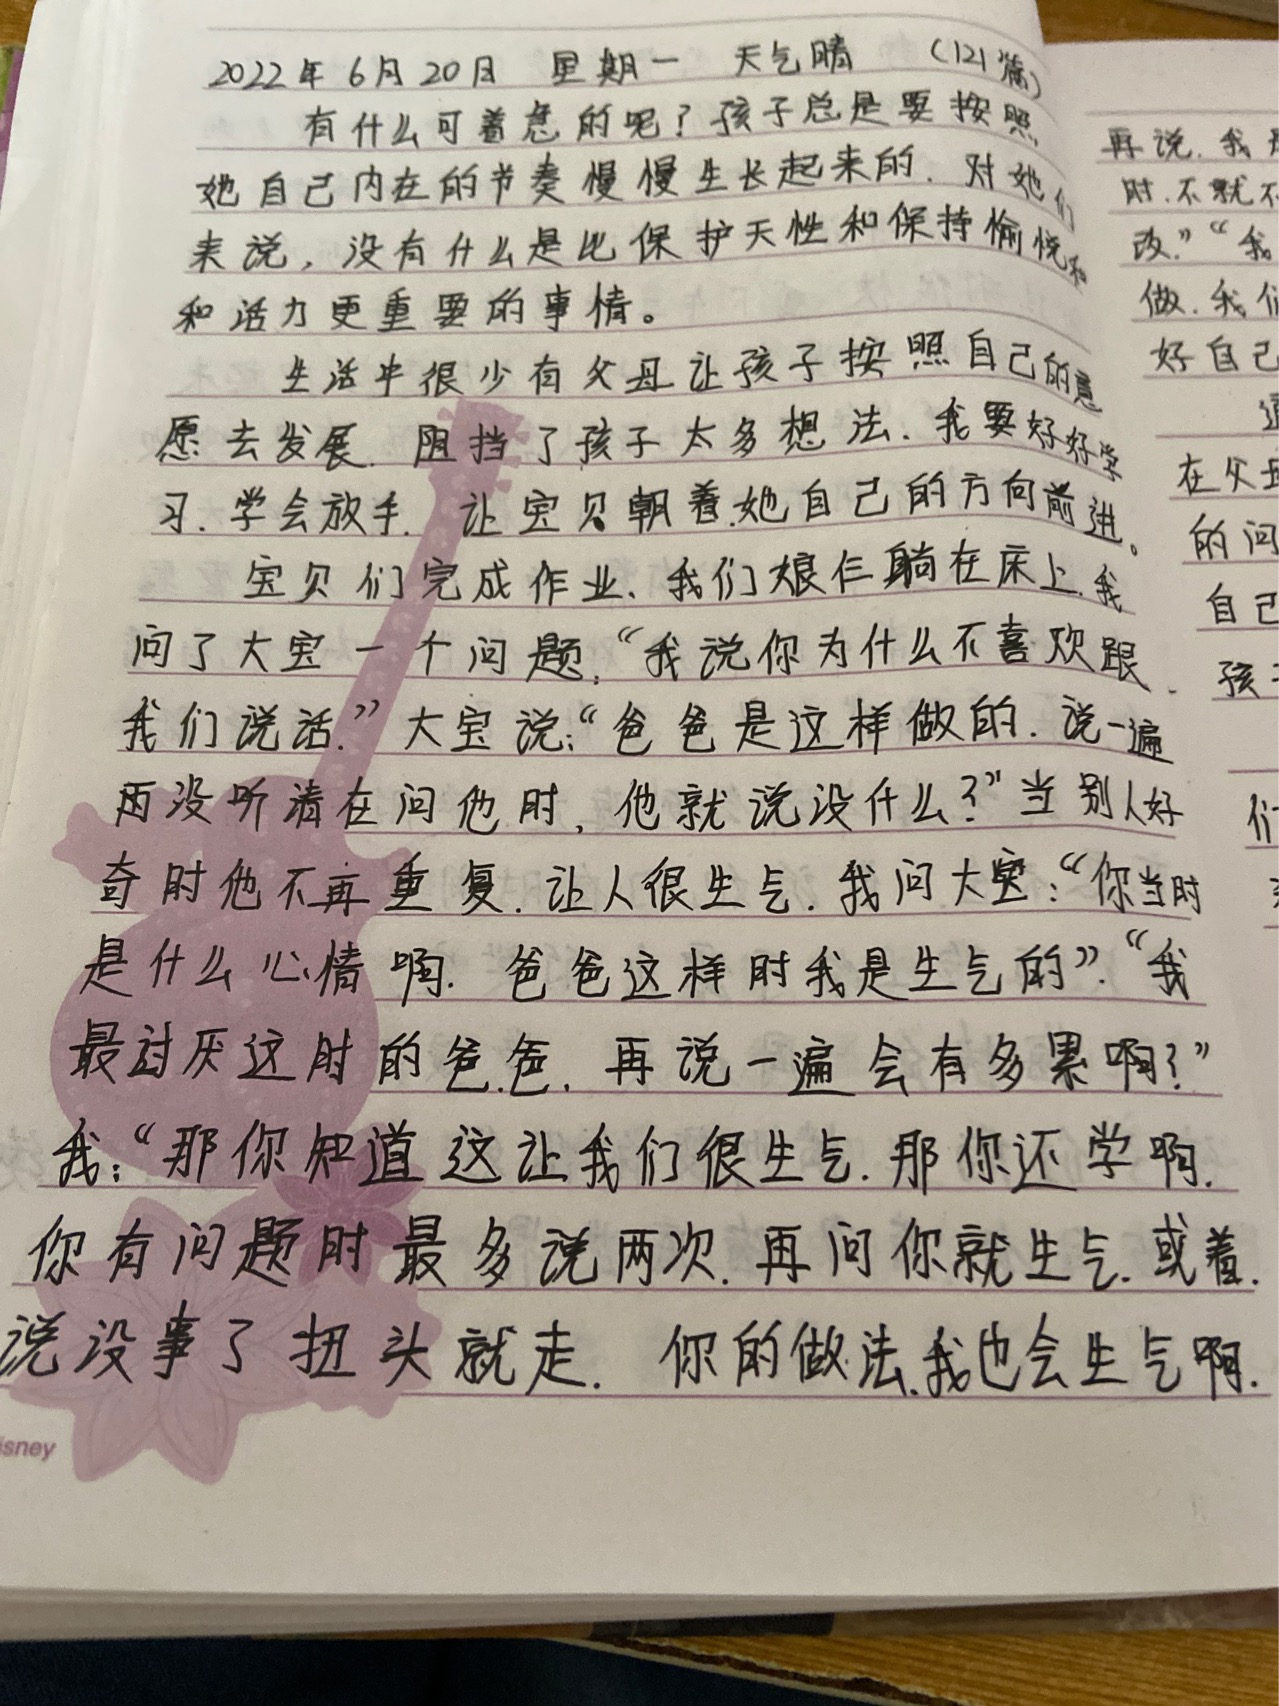 2022年6月20日 星期一 天气晴 (121篇)
有什么可着急的呢?孩子总是要按照
她自己内在的节奏慢慢生长起来的.对她们
来说,没有什么是比保护天性和保持愉悦和
和活力更重要的事情。
生活中很少有父母让孩子按照自己的意
愿去发展.阻挡了孩子太多想法.我要好好学
习.学会放手.让宝贝朝着她自己的方向前进。
宝贝们完成作业.我们娘仨躺在床上.我
问了大宝一个问题,“我说你为什么不喜欢跟
我们说话.”大宝说:“爸爸是这样做的.说一遍
两没听清在问他时,他就说没什么?”当别人好
奇时他不再重复.让人很生气.我问大宝:“你当时
是什么心情啊.爸爸这样时我是生气的”.“我
最讨厌这时的爸爸.再说一遍会有多累啊?”
我:“那你知道这让我们很生气.那你还学啊.
你有问题时最多说两次.再问你就生气.或着.
说没事了扭头就走.你的做法.我也会生气啊.
isney
再说.我
时.不就不
改.”“我
做.我们
好自己
在父母
的问
自己
孩子
们